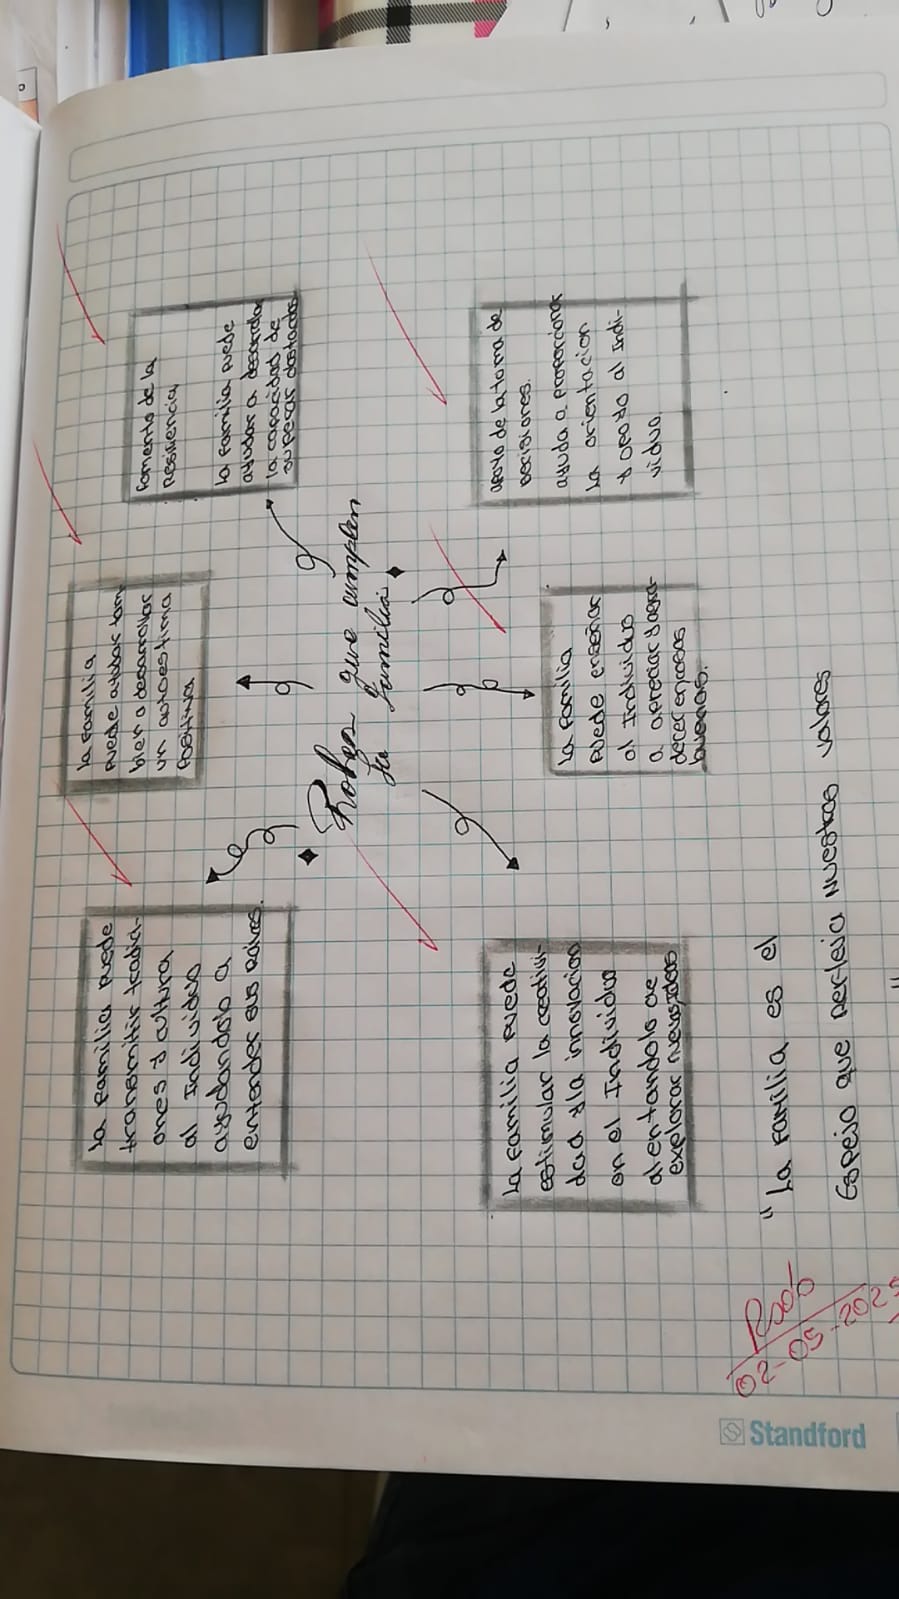 Roles que cumplen
la familia
La familia puede
transmitir tradici-
ones y cultura
al Individuo
ayudandolo a
entender sus raices.
la familia
puede ayudar tam
bien a desarrollar
un autoestima
Positiva
fomento de la
Resiliencia
la familia puede
ayudar a desarrollar
la capacidad de
superar obstaculos
La familia puede
estimular la creativi-
dad y la innovacion
en el Individuo
alentandolo a
explorar nuevas ideas
la familia
puede enseñar
al Individuo
a apreciar y agra-
decer en cosas
buenas.
apoyo de la toma de
Decisiones.
ayuda a proporcionar
la orientacion
y apoyo al Indi-
viduo
"La familia es el
Espejo que refleja Nuestros valores
"
02-05-2025
Standford